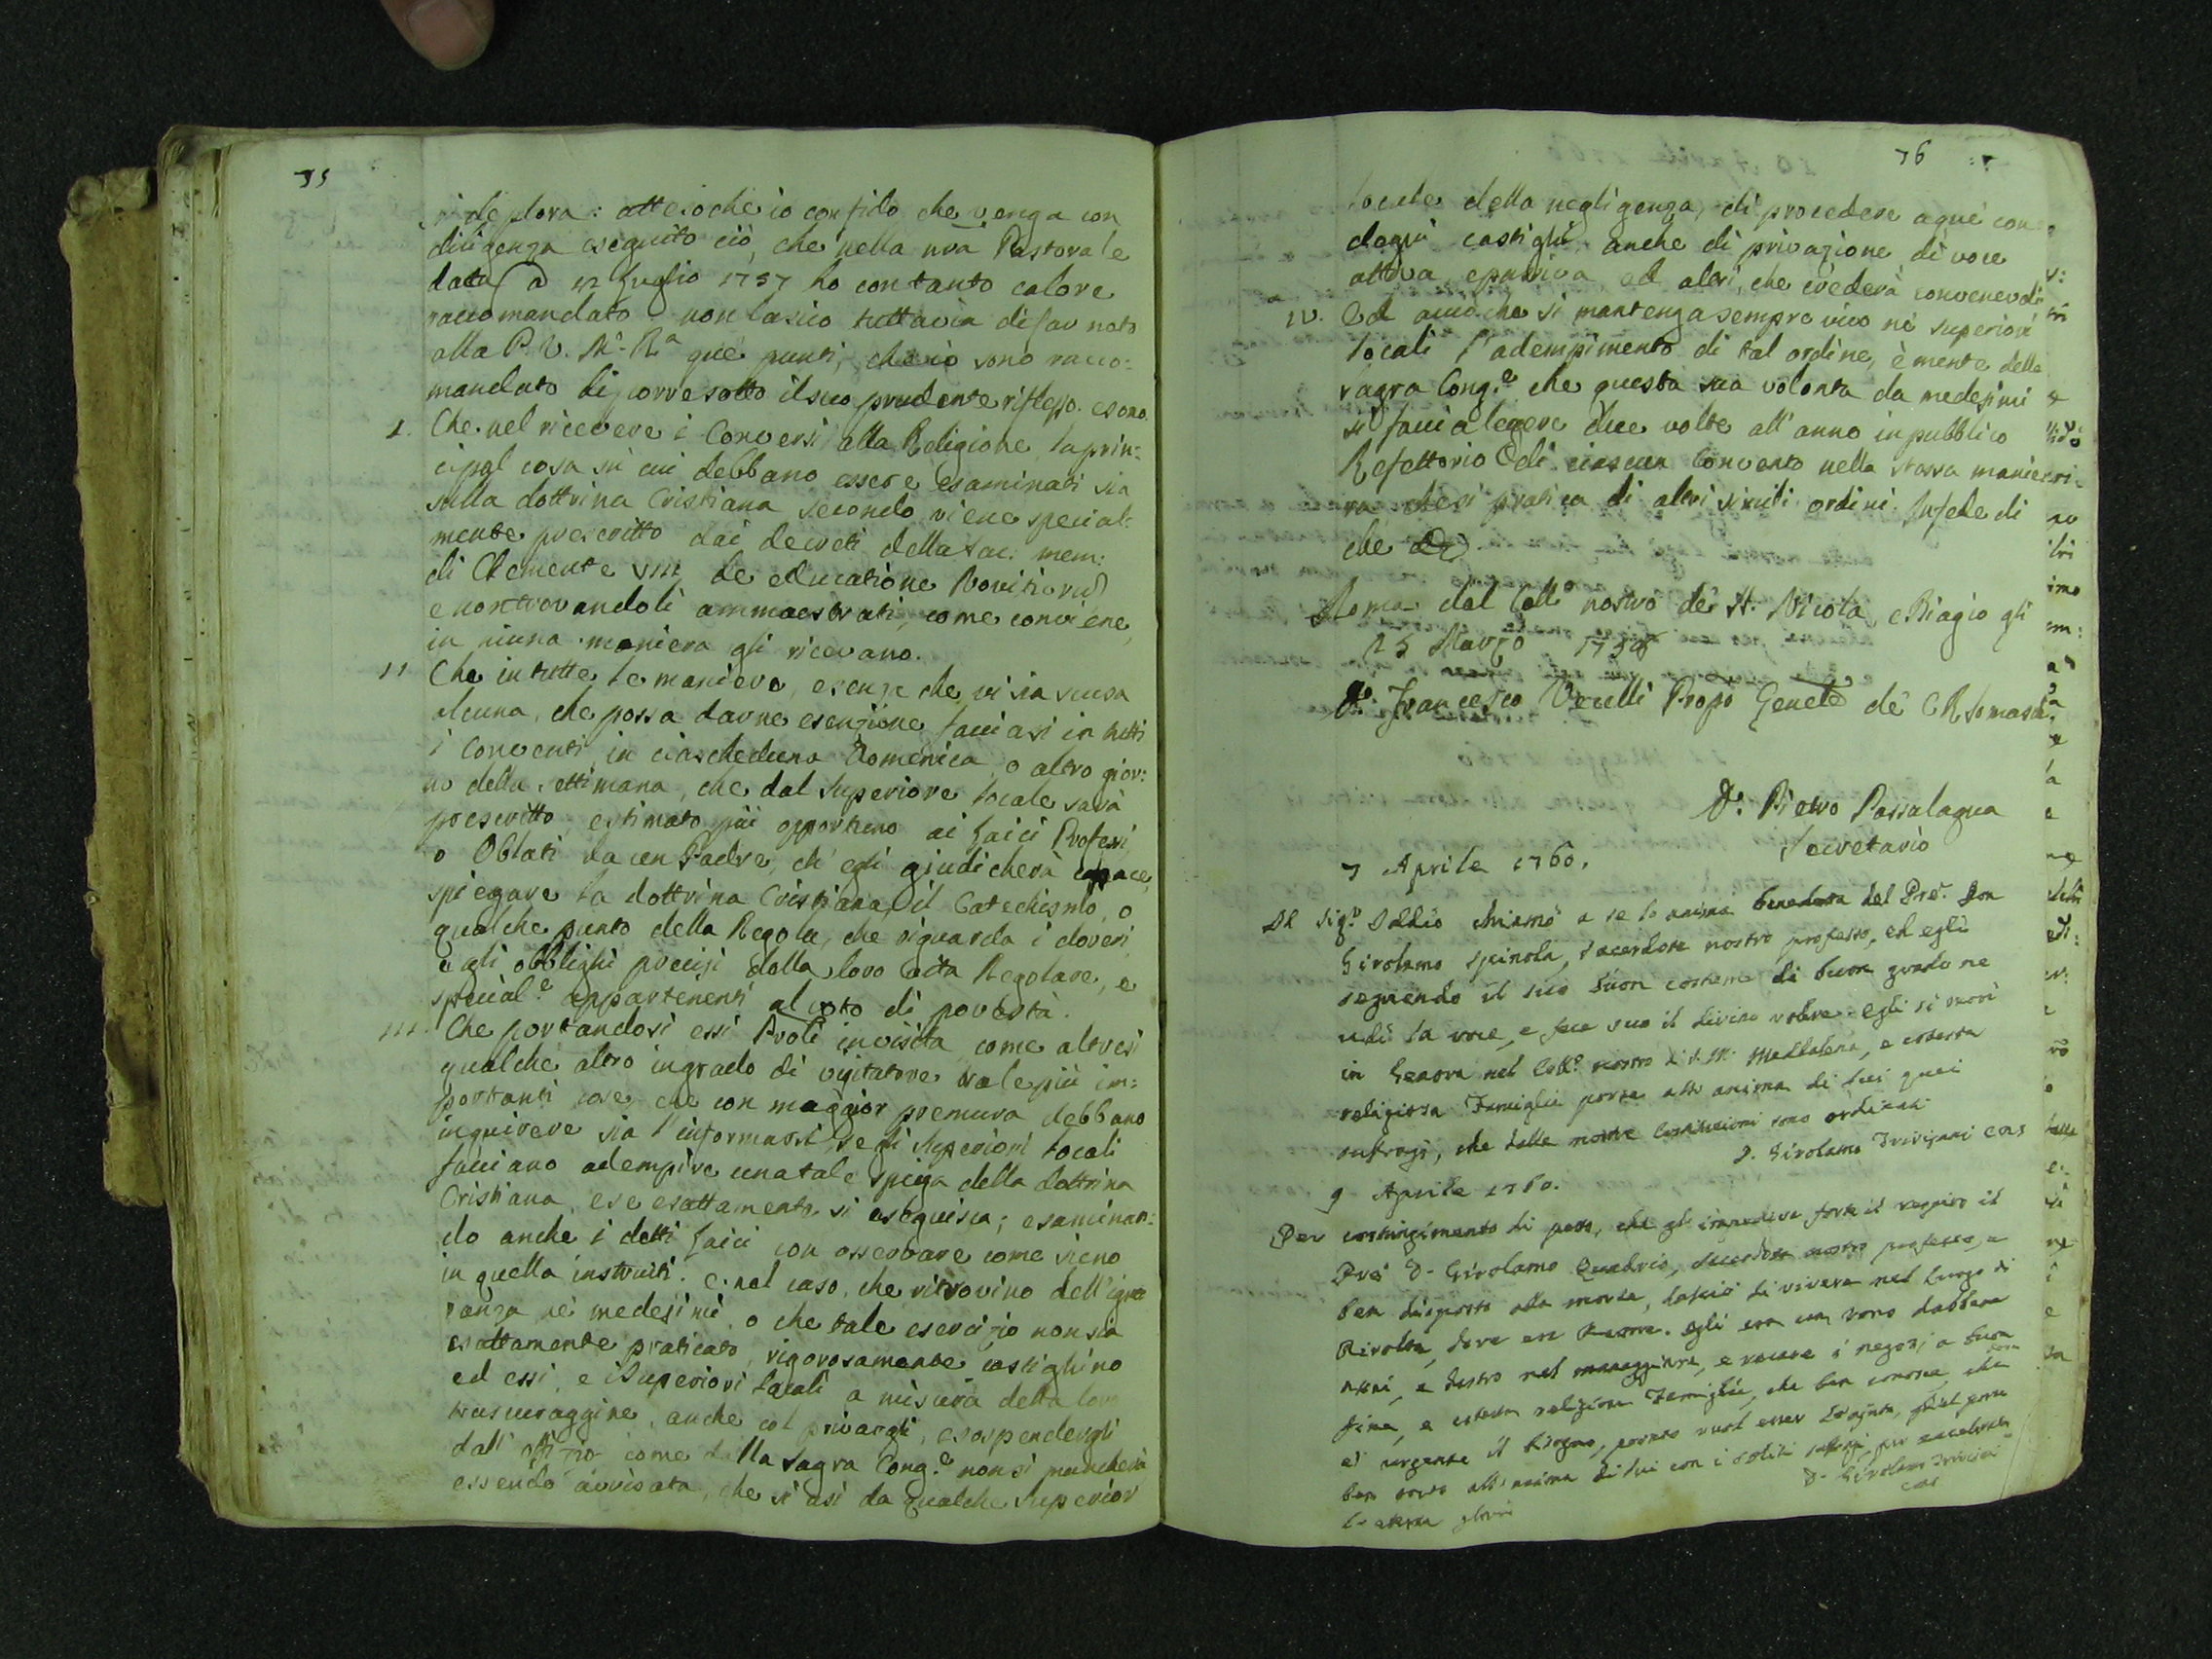 75
si deplora: attesoche io confido che venga con
diligenza eseguito ciò, che nella nrã Pastorale
data a 12 Luglio 1757 ho con tanto calore
raccomandato non lascio tuttavia di far noto
alla P. V. M.ᵗᵒ Rª que' punti, che ciò sono racco:
mandato di porre sotto il suo prudente riflesso. e sono.
I. Che nel ricevere i Conversi alla Religione, la prin:
cipal cosa sù cui debbano essere esaminati sia
sulla dottrina Cristiana secondo viene special:
mente prescritto dai decreti della sac: mem:
di Clemente VIII de educatione Novitiorũ
e non trovandoli ammaestrati, come conviene,
in niuna maniera gli ricevano.
II Che in tutte le maniere, e senza che vi sia scusa
alcuna, che possa darne esenzione facciasi in tutti
i Conventi in ciascheduna Domenica, o altro gior:
no della settimana, che dal Superiore locale sarà
prescritto, e stimato più opportuno ai Laici Professi,
o Oblati da un Padre, ch' egli giudicherà capace,
spiegare la dottrina Cristiana, il Catechismo, o
qualche punto della Regola, che riguarda i doveri
e gli obblighi precisi della loro vita Regolare, e
special.ᵉ appartenenti al voto di povertà.
III. Che portandosi essi Prõli in visita, come altresi
qualche altro in grado di visitatore trale più im:
portanti cose, che con maggior premura debbano
inquirere sia l'informarsi, se li Superiori locali
facciano adempire una tale spiega della dottrina
Cristiana, e se esattamente si eseguisca; esaminan:
do anche i detti Laici con osservare come sieno
in quella instruiti. e nel caso, che ritrovino dell'igno
ranza ne' medesimi, o che tale esercizio non sia
esattamente praticato, rigorosamente castighino
ed essi, e i Superiori locali a misura della loro
trascuraggine, anche col privargli, e sospendergli
dall' offizio come dalla Sagra Cong.ᵉ non si mancherà
essendo avvisata, che si usi da qualche Superior
76
locale della negligenza, di procedere a què con:
degni castighi anche di privazione di voce
attiva, e passiva, ed altri, che crederà convenevoli
IV. Ed acciò che si mantenga sempre vivo nè superiori
locali l'adempimento di tal ordine, è mente della
sagra Cong.ᵉ che questa sua volontà da medesimi
si faccia legere due volte all' anno in pubblico
Refettorio di ciascun Convento nella stessa manie
ra che si pratica di altri simili ordini. In fede di
che &c.
Roma dal Collº nostro de' SS. Nicola, e Biagio gli
25 Marzo 1758
D. Francesco Vecelli Propõ Genele de' CR Somaschi
D. Pietro Passalaqua
Secretario
7 Aprile 1760.
Il Sigʳ Iddio chiamò a se la anima benedetta del Pre. Don
Girolamo Spinola, sacerdote nostro professo, ed egli
seguendo il suo buon costume di buon grado ne
udi la voce, e fece suo il divino volere. egli si morì
in Genova nel Collº nostro di S. M. Maddalena, e cotesta
religiosa Famiglia porga all' anima di lui quei
sufragj, che dalle nostre Costituzioni sono ordinati
D. Girolamo Trivisani Canc
9 Aprile 1760.
Per costringimento di petto, che gli impediva forte il respiro il
Pre' D. Girolamo Quadrio, sacerdote nostro professo, e
ben disposto alla morte, lasciò di vivere nel luogo di
Rivolta, dove era Rettore. egli era un uomo dabbene
assai, e destro nel maneggiare, e recare i negozj a buon
fine, e cotesta religiosa Famiglia, che ben conosce, che
è urgente il bisogno,
ben porto all' anima di lui con i soliti sufragj, per
la eterna gloria
D. Girolamo Trivisani
Canc